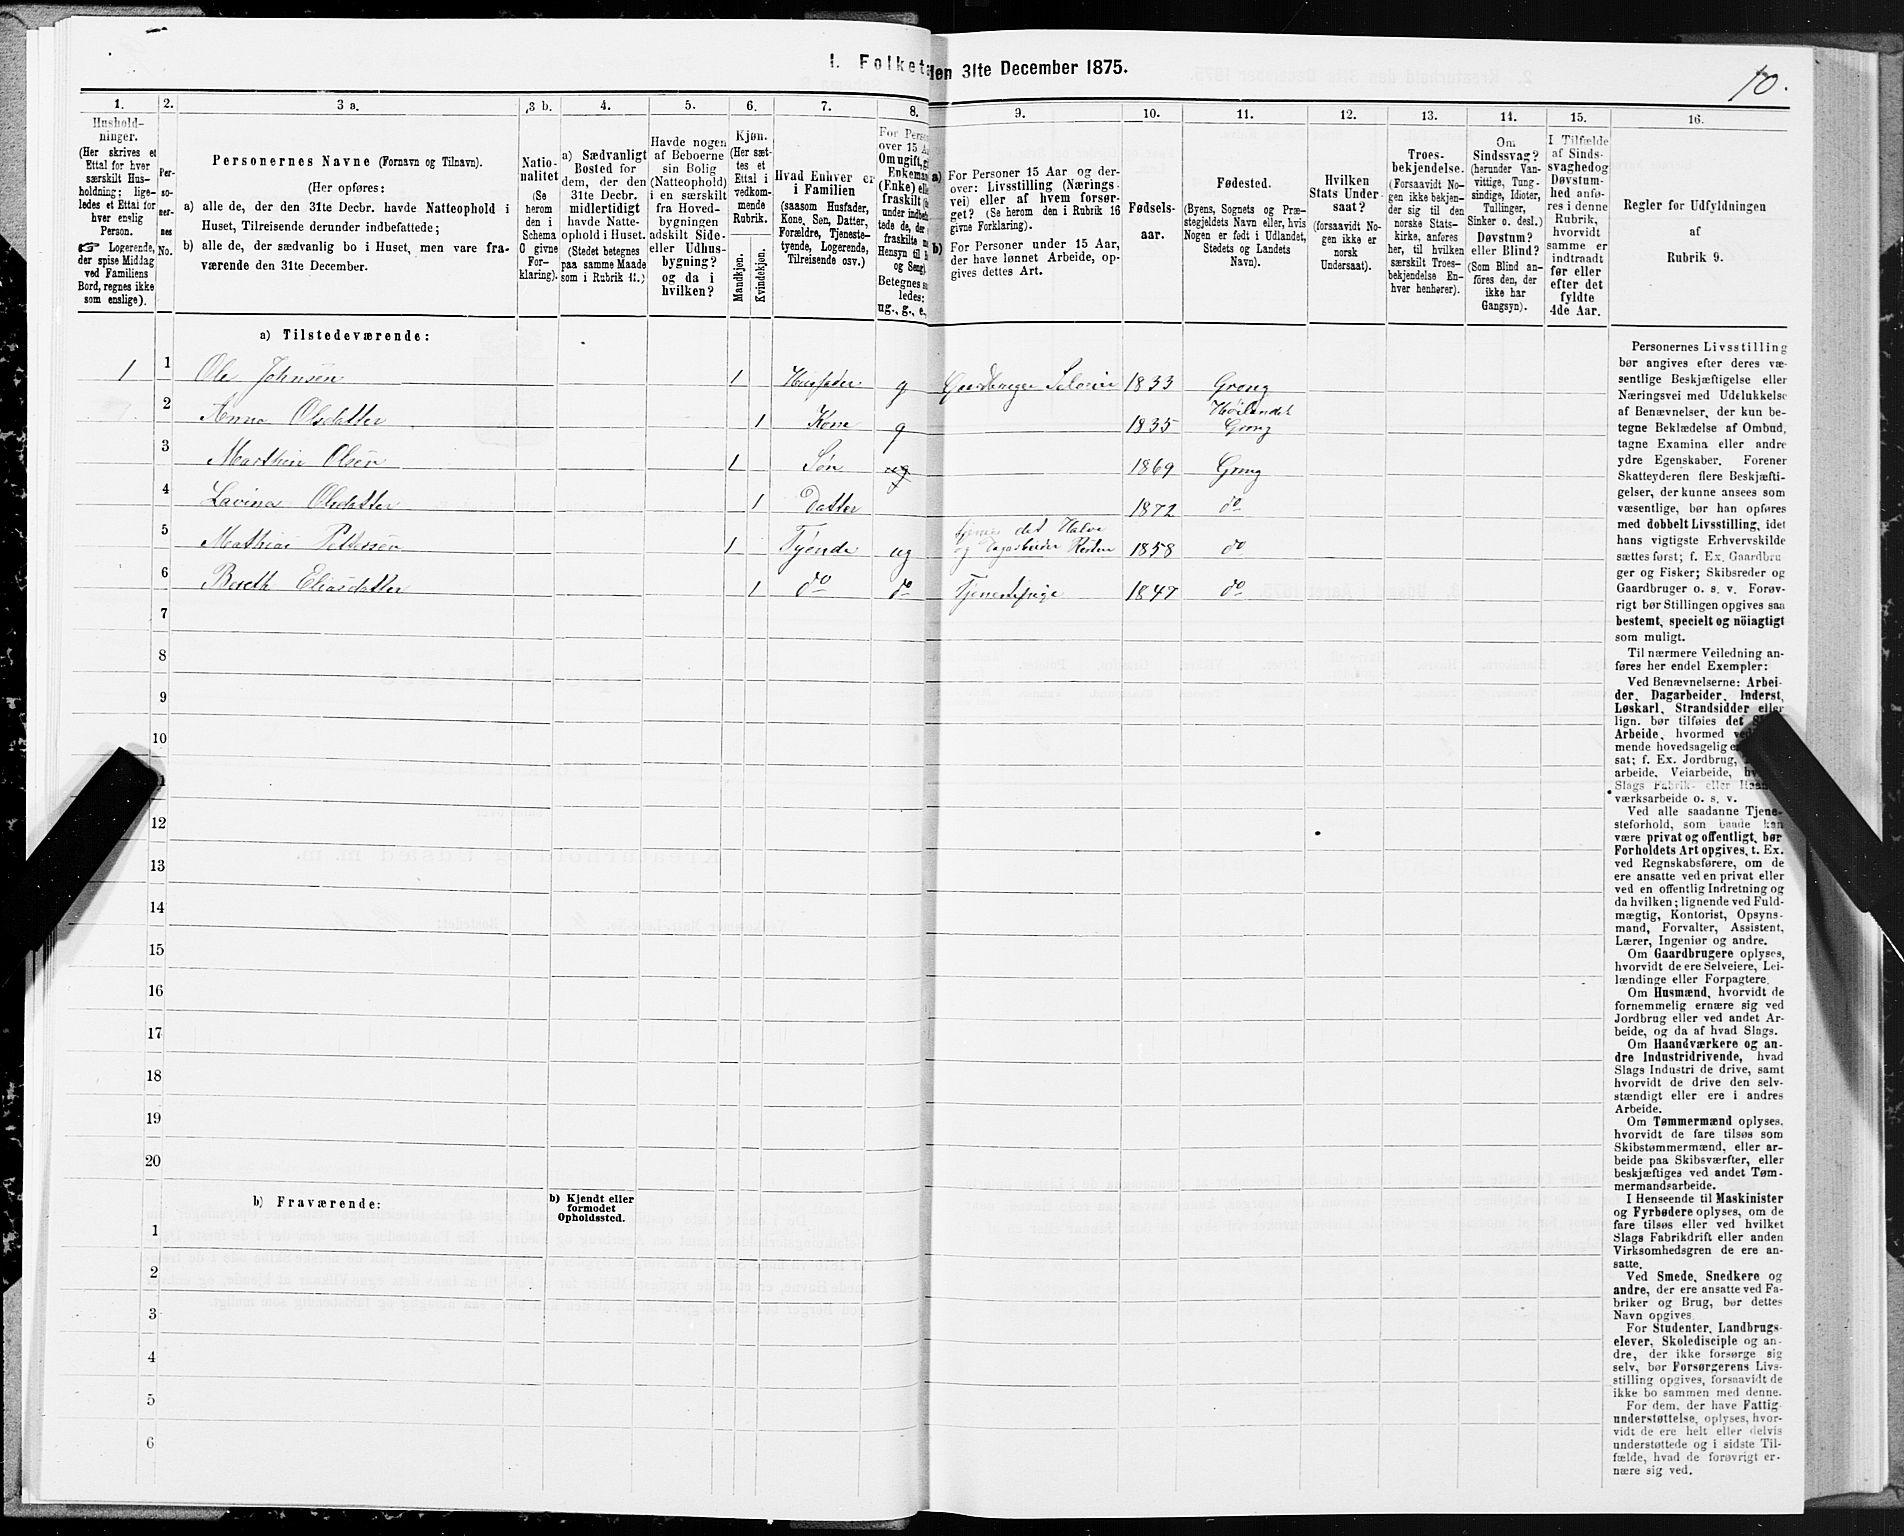 I. Folketa
den 31te December 1875.
10.
1.
2.
3 a.
3 b.
4.
5.
6.
7.
8.
9.
10.
11.
12.
13.
14.
15.
16.
Hushold-
ninger.
(Her skrives et
Ettal for hver
særskilt Hus-
holdning; lige-
ledes et Ettal for
hver enslig
Person.
☞ Logerende,
der spise Middag
ved Familiens
Bord, regnes ikke
som enslige).
Per-
so-
ner-
nes
No.
Personernes Navne (Fornavn og Tilnavn).
(Her opføres:
a) alle de, der den 31te Decbr. havde Natteophold i
Huset, Tilreisende derunder indbefattede;
b) alle de, der sædvanlig bo i Huset, men vare fra-
værende den 31te December.
Natio-
nalitet
(Se
herom
den i
Schema
C givne
For-
klaring).
a) Sædvanligt
Bosted for
dem, der den
31te Decbr.
midlertidigt
havde Natte-
ophold i Huset.
(Stedet betegnes
paa samme Maade
som i Rubrik 11.)
Havde nogen
af Beboerne
sin Bolig
(Natteophold)
i en særskilt
fra Hoved-
bygningen
adskilt Side-
eller Udhus-
bygning?
og da i
hvilken?
Kjøn.
(Her sæt-
tes et
Ettal i
vedkom-
mende
Rubrik.
Mandkjøn.
Kvindekjøn.
Hvad Enhver er
i Familien
(saasom Husfader,
Kone, Søn, Datter,
Forældre, Tjeneste-
tyende, Logerende,
Tilreisende osv.)
For Perso
over 15 Aa
Om ugift, g
Enkema
(Enke) elle
fraskilt (
under indbef
tede de, der
fraskilte
Hensyn til
og Seng)
Betegnes s
ledes:
ug., g., e.,
a)
For Personer 15 Aar og der-
over: Livsstilling (Nærings-
vei) eller af hvem forsør-
get? (Se herom den i Rubrik 16
givne Forklaring).
b)
For Personer under 15 Aar,
der have lønnet Arbeide, op-
gives dettes Art.
Fødsels-
aar.
Fødested.
(Byens, Sognets og Præ-
stegjeldets Navn eller, hvis
Nogen er født i Udlandet,
Stedets og Landets
Navn).
Hvilken
Stats Under-
saat?
(forsaavidt No-
gen ikke er
norsk
Undersaat).
Troes-
bekjendelse.
(Forsaavidt No-
gen ikke bekjen-
der sig til den
norske Stats-
kirke, anføres
her, til hvilken
særskilt Troes-
bekjendelse En-
hver henhører).
Om
Sindssvag?
(herunder Van-
vittige, Tung-
sindige, Idioter,
Tullinger,
Sinker o. desl.)
Døvstum?
eller Blind?
(Som Blind an-
føres den, der
ikke har
Gangsyn).
I Tilfælde
af Sinds-
svaghed og
Døvstum-
hed anfø-
res i denne
Rubrik,
hvorvidt
samme er
indtraadt
før eller
efter det
fyldte
4de Aar.
Regler for Udfyldningen
af
Rubrik 9.
a) Tilstedeværende:
1 1 Ole Johnsen 1 Husfader g Gaardbruger Selveier 1833 Grong
2 Anna Olsdatter 1 Kone g 1835 Høilandet Grong
3 Marthin Olsen 1 Søn ug 1869 Grong
4 Lavina Olsdatter 1 Datter 1872 do
5 Mathias Pettersen 1 Tyende ug tjener det Halve
og Dagarbeider Resten 1858 do
6 Bereth Eliasdatter 1 do do Tjenestpige 1847 do
7
8
9
10
12
13
14
15
16
17
18
19
20
b) Fraværende:
b) Kjendt eller
formodet
Opholdssted.
1
2
3
4
5
6
Personernes Livsstilling
bør angives efter deres væ-
sentlige Beskjæftigelse eller
Næringsvei med Udelukkelse
af Benævnelser, der kun be-
tegne Beklædelse af Ombud,
tagne Examina eller andre
ydre Egenskaber. Forener
Skatteyderen flere Beskjæfti-
gelser, der kunne ansees som
væsentlige, bør han opføres
med dobbelt Livsstilling, idet
hans vigtigste Erhvervskilde
sættes først; f. Ex. Gaardbru-
ger og Fisker; Skibsreder og
Gaardbruger o. s. v. Forøv-
rigt bør Stillingen opgives saa
bestemt, specielt og nöiagtigt
som muligt.
Til nærmere Veiledning an-
føres her endel Exempler:
Ved Benævnelserne: Arbei-
der, Dagarbeider, Inderst,
Løskarl, Strandsidder eller
lign. bør tilføies det S
Arbeide, hvormed ve
mende hovedsagelig e
sat; f. Ex. Jordbrug,
arbeide, Veiarbeide, h
Slags Fabrik- eller Haan
værksarbeide o. s. v.
Ved alle saadanne Tjene-
steforhold, som baade kan
være privat og offentligt, bør
Forholdets Art opgives, t. Ex.
ved Regnskabsførere, om de
ere ansatte ved en privat eller
ved en offentlig Indretning og
da hvilken; lignende ved Fuld-
mægtig, Kontorist, Opsyns-
mand, Forvalter, Assistent,
Lærer, Ingeniør og andre.
Om Gaardbrugere oplyses,
hvorvidt de ere Selveiere, Lei-
lændinge eller Forpagtere.
Om Husmænd, hvorvidt de
fornemmelig ernære sig ved
Jordbrug eller ved andet Ar-
beide, og da af hvad Slags.
Om Haandværkere og an-
dre Industridrivende, hvad
Slags Industri de drive, samt
hvorvidt de drive den selv-
stændigt eller ere i andres
Arbeide.
Om Tømmermænd oplyses,
hvorvidt de fare tilsøs som
Skibstømmermænd, eller ar-
beide paa Skibsværfter, eller
beskjæftiges ved andet Tøm-
mermandsarbeide.
I Henseende til Maskinister
og Fyrbødere oplyses, om de
fare tilsøs eller ved hvilket
Slags Fabrikdrift eller anden
Virksomhedsgren de ere an-
satte.
Ved Smede, Snedkere og
andre, der ere ansatte ved Fa-
briker og Brug, bør dettes
Navn opgives.
For Studenter, Landbrugs-
elever, Skoledisciple og an-
dre, der ikke forsørge sig
selv, bør Forsørgerens Livs-
stilling opgives, forsaavidt de
ikke bo sammen med denne.
For dem, der have Fattig-
understøttelse, oplyses, hvor-
vidt de ere helt eller delvis
understøttede og i sidste Til-
fælde, hvad de forøvrigt er-
nære sig ved.